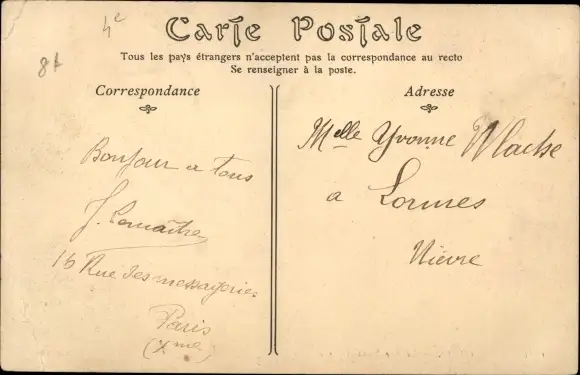 4e
Carte Postale
Tous les pays étrangers n'acceptent pas la correspondance au recto
Se renseigner à la poste.
Correspondance
Bonjour a tous
J. Lemaître
16 Rue des messageries
Paris
(Xme)
Adresse
Melle Yvonne
a Lormes
Nièvre